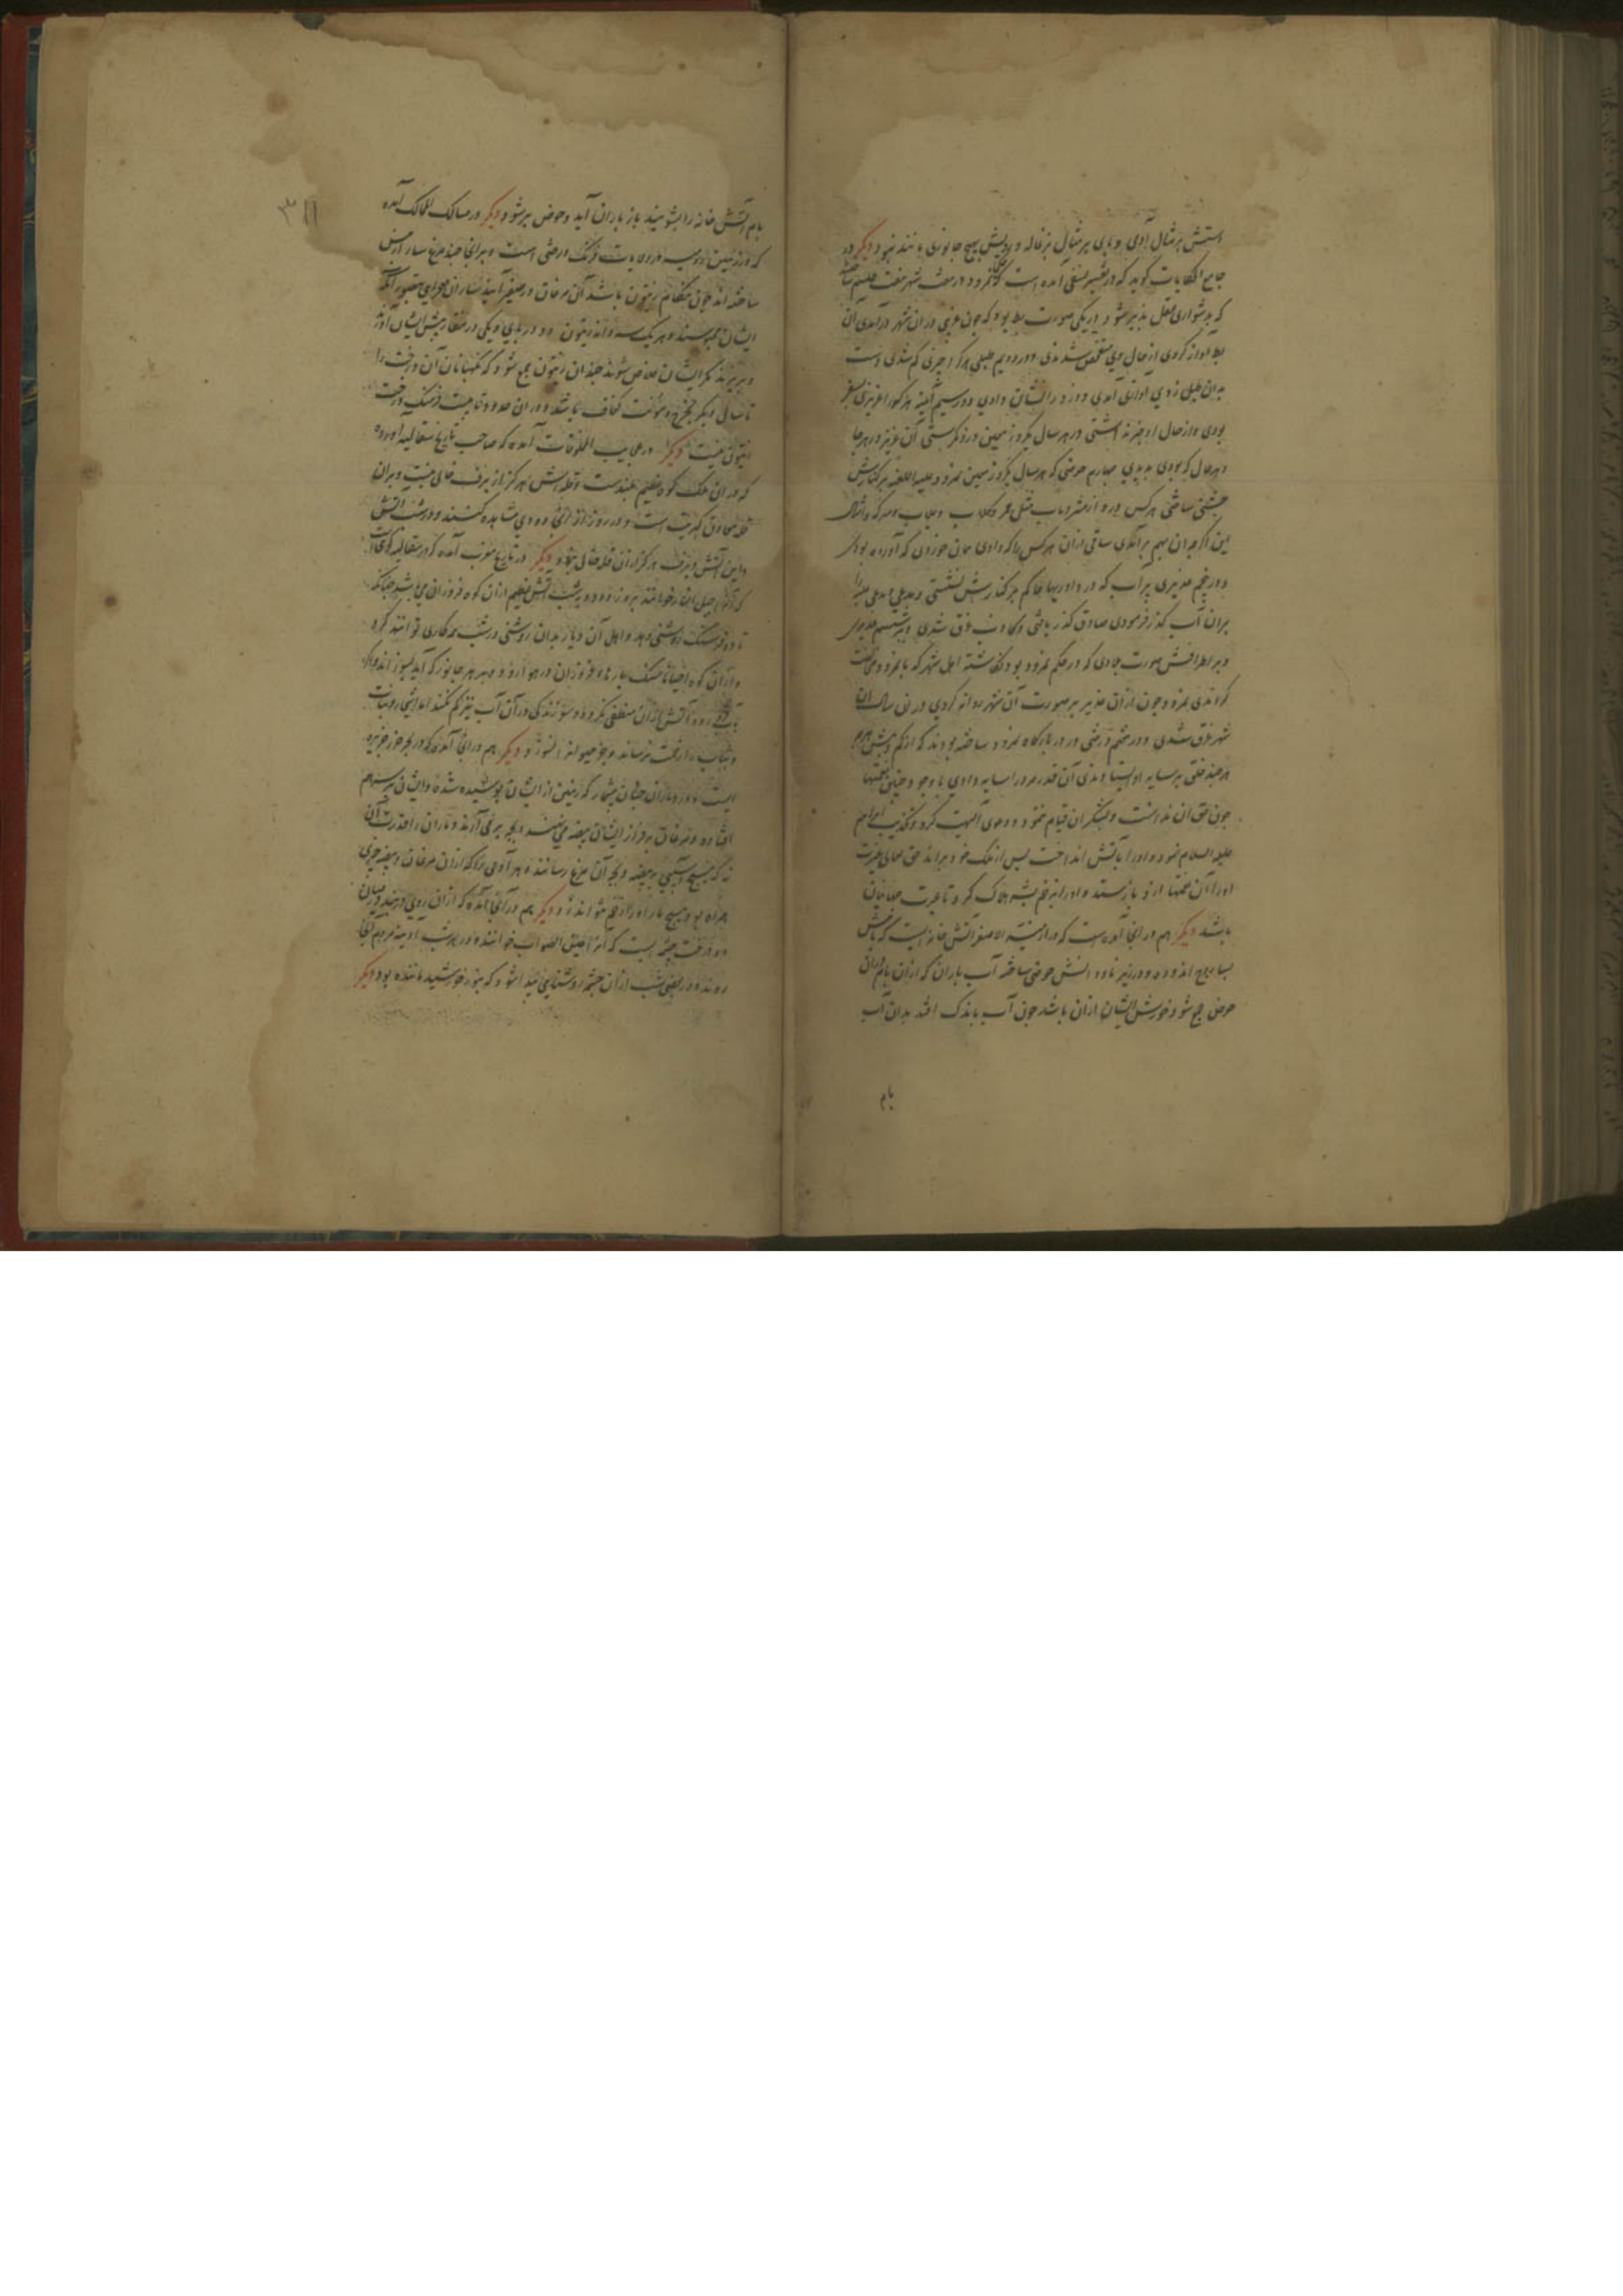 دستش بر مثال آدمی و پای بر مثال بزغاله و رویش بهیچ جانوری مانند نبود دیگر در
جامع الحکایات گوید که در تفسیر نسفی آمده است که نمرود در هفت شهر هفت طلسم ساخته
که بدشواری عقل پذیر شود در یکی صورت بط بود که چون غریبی در ان شهر درآمدی آن
بط آواز کردی از حال وی متفحص شدندی در دویم طبلی هرکرا چیزی کم شدی دست
بدان طبل زدی آوازی آمدی و دزد را نشان دادی در سیم آینه هرکرا عزیزی بسفر
بودی و از حال او خبر نداشتی در هر سال یکروز معین درو نکرستی آن عزیز در هر جا
و هر حال که بودی بدیدی چهارم حوضی که هر سال یکروز معین نمرود علیه اللعنه برکنارش
جشنی ساختی هرکس درو از مشروبات مثل خمر و کلاب و جلاب و سرکه و امثال
این اگرچه ان بهم برآمدی ساقی از آن هرکس را که دادی همان خوردی که آورده بودی
در پنجم غدیری پر آب که در داوریها حاکم بر کنارش نشستی و مدعی و مدعی علیه را
بران آب گذر فرمودی صادق گذر یافتی و کاذب غرق شدی در ششم غدیری
و بر اطرافش صورت بلادی که در حکم نمرود بود نگاشته اهل شهر که با نمرود مخالفت
کردندی نمرود چون از آن غدیر بر صورت آن شهر روانه کردی در زمان آن
شهر غرق شدی و در هفتم درختی در در بارگاه نمرود ساخته بودند که از کم و بیش مردم
هر چند خلق بر سایه او ایستادندی آن قدر مردم را سایه دادی با وجود چنین نعمتها
چون حق آن ندانست و بشکر آن قیام ننمود و دعوی الهیت کرد و تکذیب ابراهیم
علیه السلام نمود و او را باتش انداخت پس از ملک خود براند حق تعالی بغیرت
او را آن نعمتها ازو باز ستد و او را بزخم پشه هلاک کرد تا عبرت جهانیان
باشد دیگر هم در آنجا آمده است که در ارمنیة الاصغر آتش خانه ایست که بامش
بساروج اندوده و در زیر ناودانش حوضی ساخته آب باران که از آن بام در آن
حوض جمع شود خورش ایشان از آن باشد چون آب باندک افتد بدان آب
بام
۳۱۱
بام آتش خانه را بشویند باز باران آید و حوض پر شود دیگر در مسالک الممالک آمده
که در زمین رومیه در ولایات فرنگ درختی است و بر آنجا چند مرغ سار از مس
ساخته اند چون هنگام زیتون باشد آن مرغان در صفیر آیند ساران صحرایی آنکه
ایشان محبوسند و هر یک سه دانه زیتون دو در پای و یکی در منقار پیش ایشان آورند
و بریزند مگر ایشان خلاص شوند چندان زیتون جمع شود که نگهبانان آن درخت را
تا سال دیگر بخرج و مؤنت کفاف باشد و در ان حدود تا بیست فرسنگ درخت
زیتون نیست دیگر در عجایب المخلوقات آمده که صاحب تاریخ سقالیه آورده
که در ان ملک کوه عظیم بلندست و قله اش هرگز از برف خالی نیست و بران
قله معادن کبریت است و در روز از آنجا دودی مشاهده کنند و در شب آتش
و این آتش و برف هرگز از آن قله خالی نبود دیگر در تاریخ مغرب آمده که در سقالیه کوهی است
که آنرا جبل النار خوانند بروز دود و بشب آتش عظیم از آن کوه فروزان می باشد چنانکه
تا ده فرسنگ روشنی دهد و اهل آن دیار بدان روشنی در شب همه کاری توانند کرد
و از آن کوه احیانا سنگ پارها فروزان در هوا رود و بهر جانور که آید بسوزاند و اگر
بآب رود آتش از آن منطفی نگردد و سوزندگی در آن آب نیز کم نکند اما اشجار و نبات
و ثیاب را زحمت نرساند و جز حیوان نسوزد و دیگر هم در آنجا آمده که در بحر خزر جزیره
ایست و در و ماران چنان بیشمار که زمین از ایشان پوشیده شده و ایشان بر سر هم
افتاده و مرغان بر فراز ایشان بیضه می نهند و بچه بر می آرند و ماران را قدرت آن
نه که هیچ آسیبی به بیضه و بچه آن مرغ رسانند و هر آدمی را که از آن مرغان و بیضه چیزی
همراه بود هیچ مار او را زخم نتواند زد و دیگر هم در آنجا آمده که از آن روی در میان
دو درخت چشمه ایست که آنرا عین الصواب خوانند و در هر شب آدینه مردم آنجا
روند و در بعضی شب از آن چشمه روشنایی پیدا شود که بنور خورشید ماننده بود دیگر